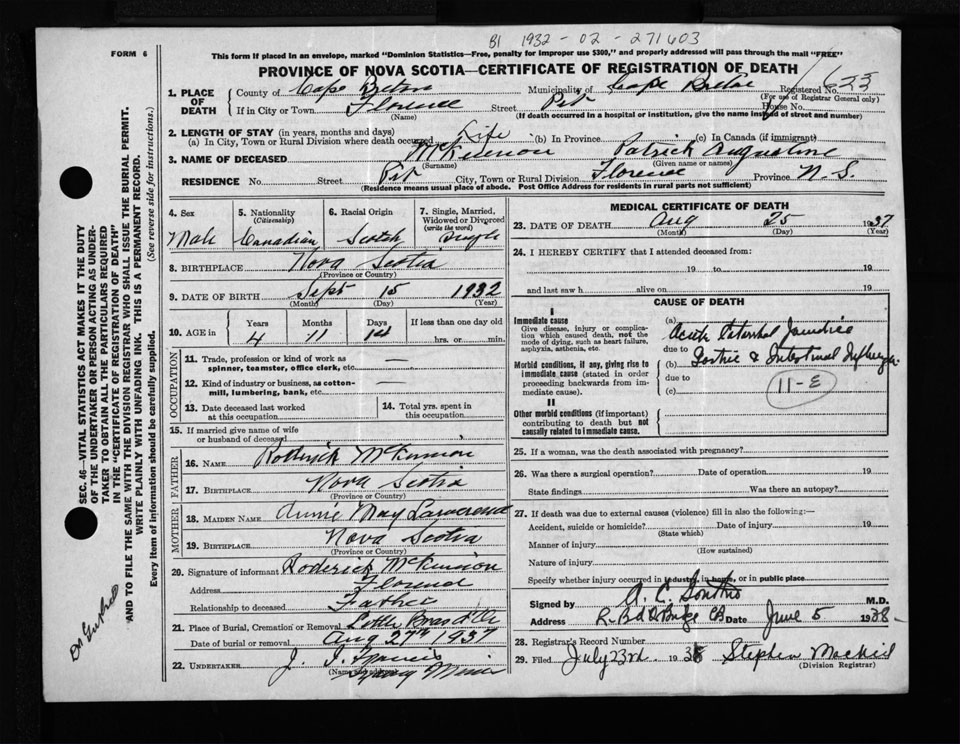 B1 1932-02-271603
FORM 6
This form if placed in an envelope, marked "Dominion Statistics—Free, penalty for improper use $300," and properly addressed will pass through the mail "FREE"
PROVINCE OF NOVA SCOTIA—CERTIFICATE OF REGISTRATION OF DEATH
1. PLACE OF DEATH County of Cape Breton Municipality of Cape Breton Registered No. 1623
(For use of Registrar General only)
If in City or Town Florence Street Pit House No.
(Name) (If death occurred in a hospital or institution, give the name instead of street and number)
2. LENGTH OF STAY (in years, months and days)
(a) In City, Town or Rural Division where death occurred Life (b) In Province (c) In Canada (if immigrant)
3. NAME OF DECEASED McKinnon Patrick Augustine
(Surname) (Given name or names)
RESIDENCE No. Street Pit City, Town or Rural Division Florence Province N.S.
(Residence means usual place of abode. Post Office Address for residents in rural parts not sufficient)
4. Sex 5. Nationality (Citizenship) 6. Racial Origin 7. Single, Married, Widowed or Divorced (write the word)
Male Canadian Scotch Single
8. BIRTHPLACE Nova Scotia
(Province or Country)
9. DATE OF BIRTH Sept 15 1932
(Month) (Day) (Year)
10. AGE in Years Months Days If less than one day old
4 11 hrs. or min.
OCCUPATION
11. Trade, profession or kind of work as spinner, teamster, office clerk, etc. —
12. Kind of industry or business, as cotton-mill, lumbering, bank, etc. —
13. Date deceased last worked at this occupation
14. Total yrs. spent in this occupation
15. If married give name of wife or husband of deceased
FATHER
16. NAME Roderick McKinnon
17. BIRTHPLACE Nova Scotia
(Province or Country)
MOTHER
18. MAIDEN NAME Annie May
19. BIRTHPLACE Nova Scotia
(Province or Country)
20. Signature of informant Roderick McKinnon
Address Florence
Relationship to deceased Father
21. Place of Burial, Cremation or Removal Little Bras d'Or
Date of burial or removal Aug 27th 1937
22. UNDERTAKER J.
(Name and address) Sydney Mines
MEDICAL CERTIFICATE OF DEATH
23. DATE OF DEATH Aug 25 1937
(Month) (Day) (Year)
24. I HEREBY CERTIFY that I attended deceased from:
19 to 19
and last saw h alive on 19
CAUSE OF DEATH
I
Immediate cause
Give disease, injury or complication which caused death, not the mode of dying, such as heart failure, asphyxia, asthenia, etc.
(a) Acute Catarrhal Jaundice
due to
Morbid conditions, if any, giving rise to immediate cause (stated in order proceeding backwards from immediate cause).
(b) Gastric & Intestinal
due to
(c)
11-E
II
Other morbid conditions (if important) contributing to death but not causally related to immediate cause.
25. If a woman, was the death associated with pregnancy?
26. Was there a surgical operation? Date of operation 19
State findings Was there an autopsy?
27. If death was due to external causes (violence) fill in also the following:—
Accident, suicide or homicide? Date of injury 19
(State which)
Manner of injury
(How sustained)
Nature of injury
Specify whether injury occurred in industry, in home, or in public place
Signed by A. C. M.D.
Address Date June 5 1938
28. Registrar's Record Number
29. Filed July 23rd 1938 Stephen
(Division Registrar)
SEC. 46—VITAL STATISTICS ACT MAKES IT THE DUTY
OF THE UNDERTAKER OR PERSON ACTING AS UNDER-
TAKER TO OBTAIN ALL THE PARTICULARS REQUIRED
IN THE "CERTIFICATE OF REGISTRATION OF DEATH"
AND TO FILE THE SAME WITH THE DIVISION REGISTRAR WHO SHALL ISSUE THE BURIAL PERMIT.
WRITE PLAINLY WITH UNFADING INK. THIS IS A PERMANENT RECORD.
Every item of information should be carefully supplied. (See reverse side for instructions.)